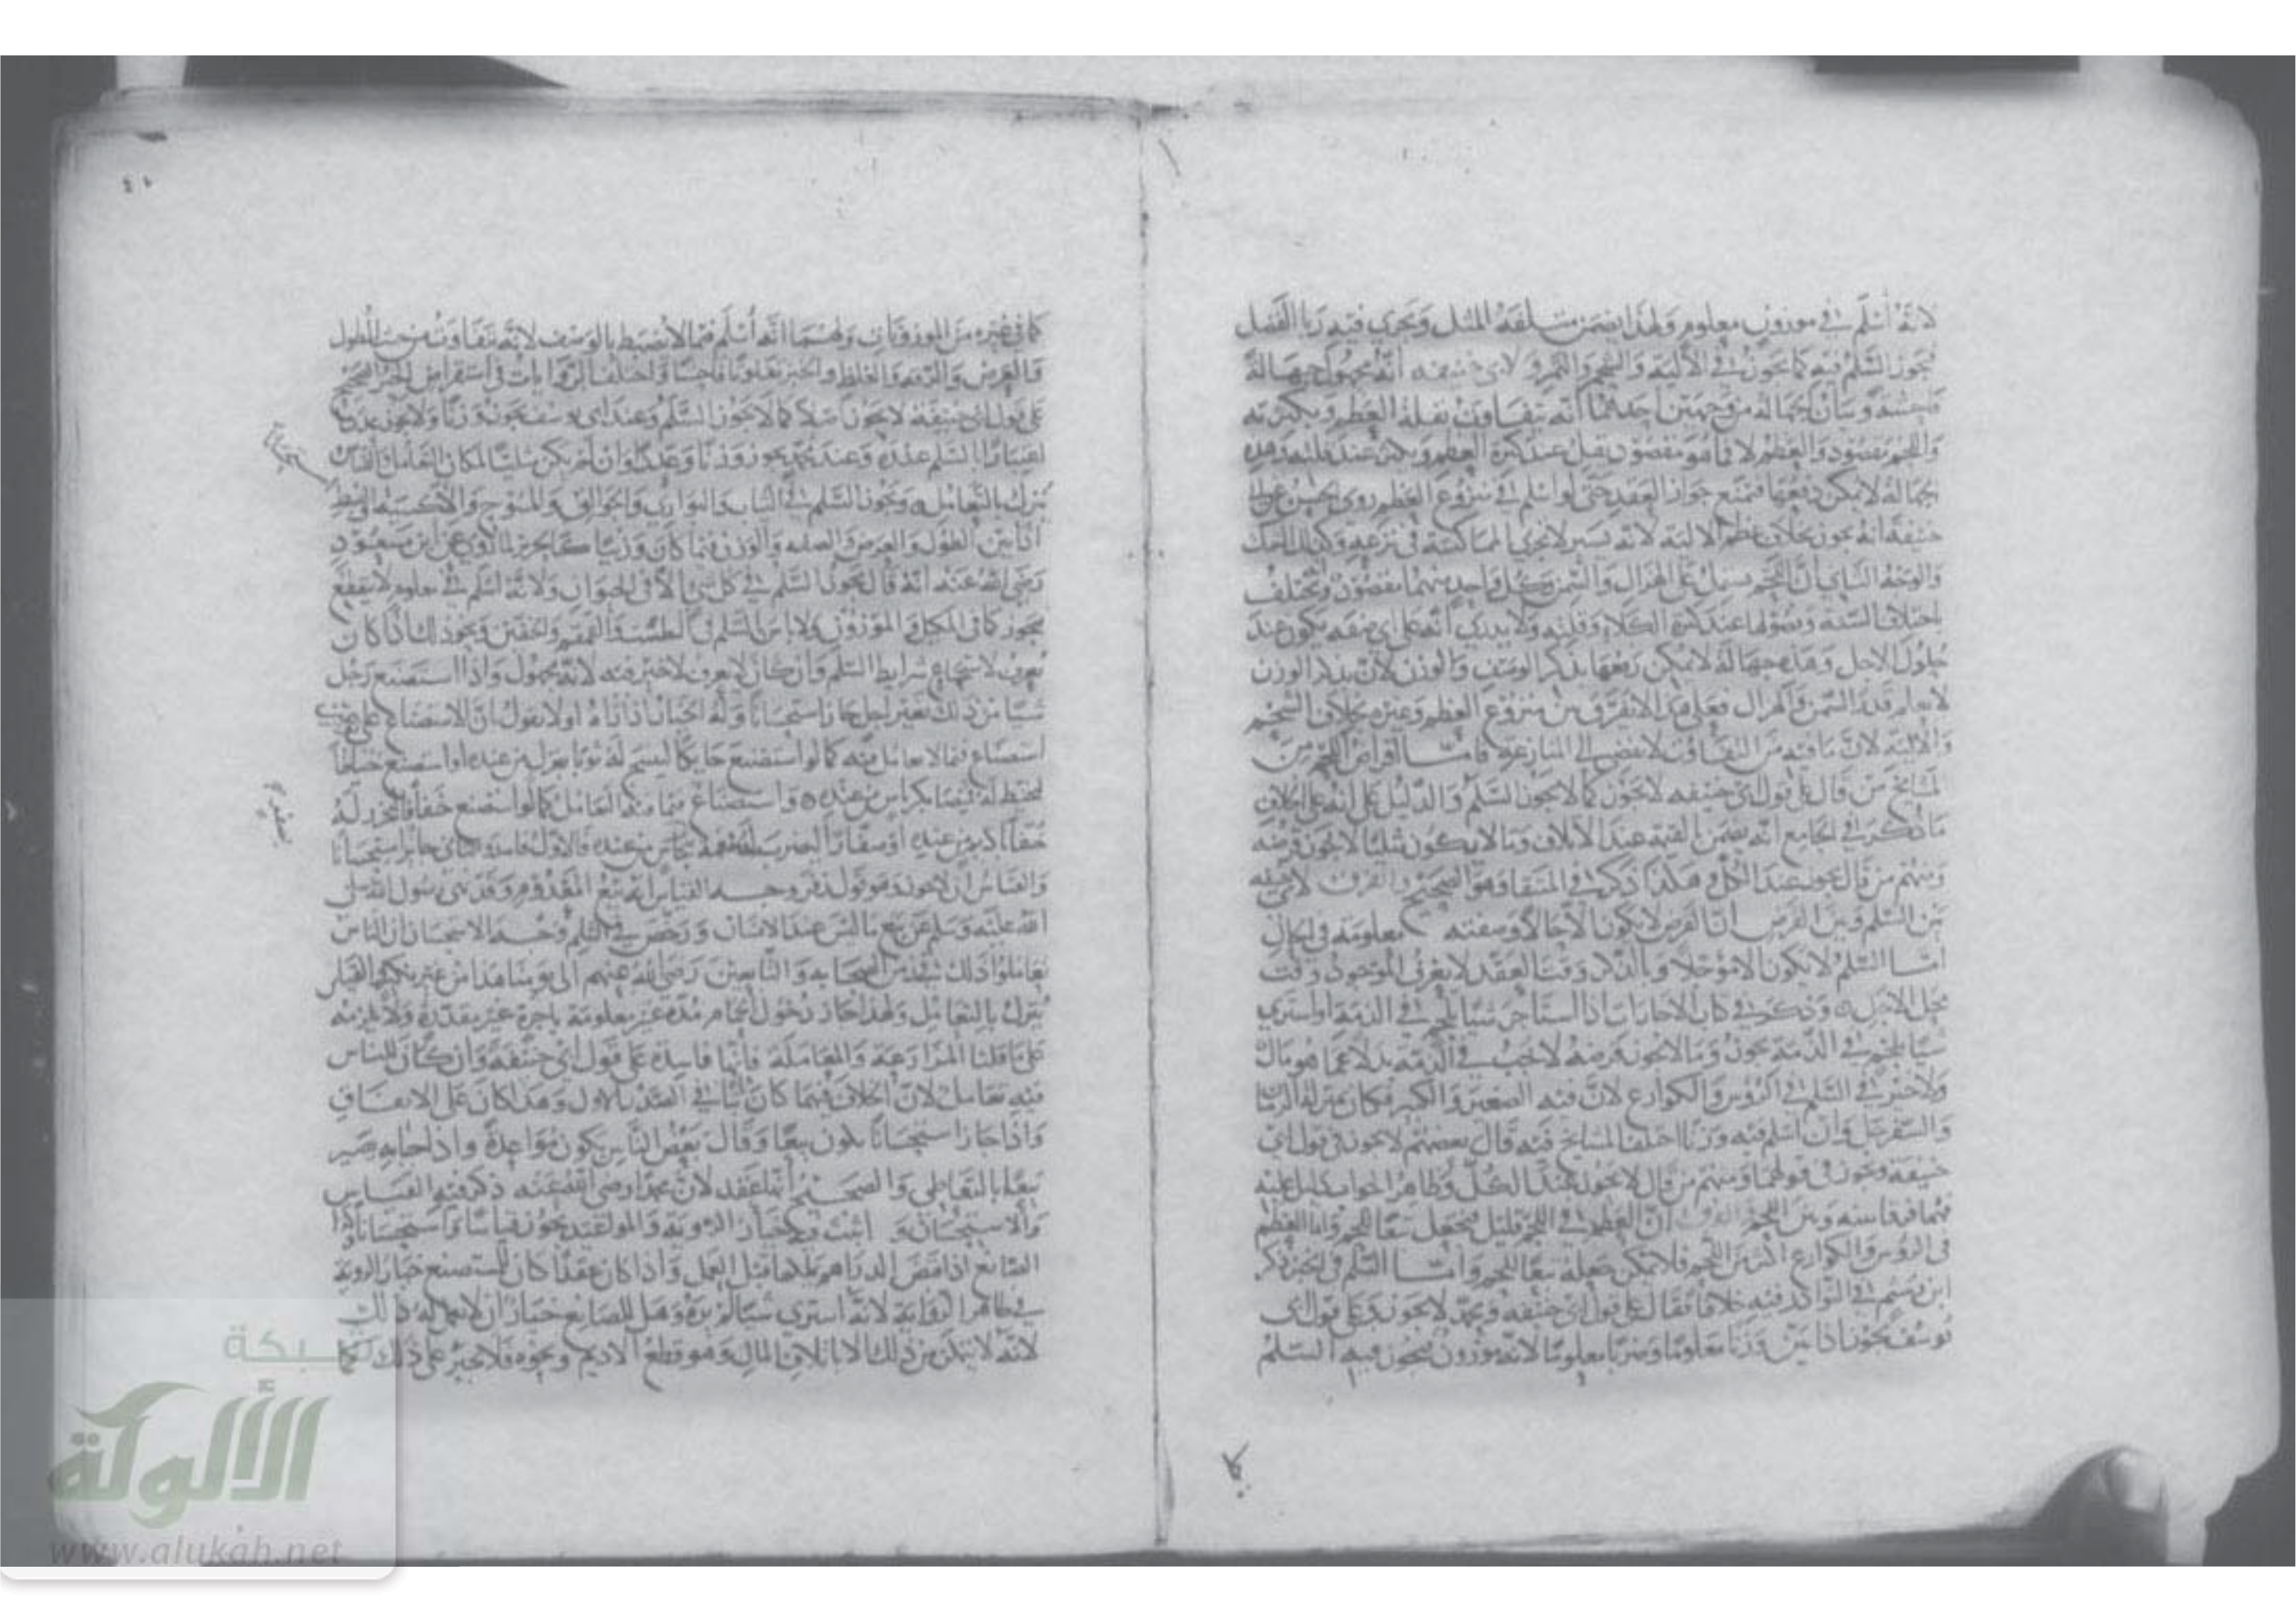 لانه أسلم في موزون معلوم ولهذا يضمن متلفه المثل ويجري فيه ربا الفضل
فيجوز السلم فيه كما يجوز في الألية والشحم ولابي حنيفه انه مجهول جهالة
فاحشة وبيان الجهالة من وجهين احدهما انه يتفاوت بقلة العظم وبكثرته
واللحم مقصود والعظم لا فما هو مقصود يقل عند كثرة العظم ويكثر عند قلته وهذه
جهالة لا يمكن دفعها فتمنع جواز العقد حتى لو اسلم في منزوع العظم روى الحسن عن ابي
حنيفة انه يجوز بخلاف عظم الالية لانه يسير لا تجري المماكسة في نزعه
والوجه الثاني ان اللحم يشتمل على الهزال والسمن وكل واحد منهما مقصود ويختلف
باختلاف السنة وفصولها عند كثرة الكلاء وقلته ولا يدري انه على اي صفة يكون عند
حلول الاجل وهذه جهالة لا يمكن رفعها بذكر الوصف والوزن لان بذكر الوزن
لا يعلم قدر السمن والهزال فعلى هذا لا تفرق بين منزوع العظم وغيره بخلاف الشحم
والالية لان ما فيه من التفاوت لا يفضي الى المنازعة فامـا اقراض اللحم من
المشايخ من قال على قول ابي حنيفه لا يجوز كما لا يجوز السلم والدليل على انه على الخلاف
ما ذكر في الجامع انه يضمن بالقيمة عند الاتلاف وما لا يكون مثليا لا يجوز قرضه
ومنهم من قال يجوز عند الكل وهكذا ذكر في المنتقا وهو الصحيح والفرق لابي حنيفه
بين السلم وبين القرض ان القرض لا يكون الا حالا وصفته معلومة في الحال
امـا السلم لا يكون الا مؤجلا وبالذكر وقت العقد لا يعرف الموجود وقت
محل الاجل وذكر في كتاب الاجارات اذا استأجر شيئا بلحم في الذمة او اشترى
شيئا بلحم في الذمة يجوز وما لا يجوز قرضه لا يجب في الذمة بدلا عما هو مال
ولا خير في السلم في الرؤس والكوارع لان فيه الصغير والكبير فكان بمنزلة الرمان
والسفرجل وان اسلم فيه وزنا اختلف المشايخ فيه قال بعضهم لا يجوز في قول ابي
حنيفة ويجوز في قولهما ومنهم من قال لا يجوز عند الكل وظاهر الجواب يدل عليه
فهما فرقا بينه وبين اللحم والفرق ان العظم في اللحم قليل فيجعل تبعا للحم واما العظم
في الرؤس والكوارع اكثر من اللحم فلا يمكن جعله تبعا للحم وامـا السلم في الخبز ذكر
ابن رستم في النوادر فيه خلافا فقال على قول ابي حنيفه ومحمد لا يجوز وعلى قول ابي
يوسف يجوز اذا بين وزنا معلوما وضربا معلوما لانه موزون فيجوز فيه السلم
كما
كما في غيره من الموزونات ولهما انه أسلم فيما لا ينضبط بالوصف لانه يتفاوت من حيث الطول
والعرض والرقة والغلظ والخبز تفاوتا فاحشا واختلف الروايات في استقراض الخبز الصحيح
على قول ابي حنيفة لا يجوز اصلا كما لا يجوز السلم وعند ابي يوسف يجوز وزنا ولا يجوز عددا
اعتبارا بالسلم عنده وعند محمد يجوز وزنا وعددا وان لم يكن مثليا لمكان التعامل والقياس
يترك بالتعامل ويجوز السلم في الثياب والبواري والجوالق والمسوح والاكسية
اذا بين الطول والعرض والصفة والوزن فيما كان وزنيا كالحرير لما روي عن ابن مسعود
رضي الله عنه انه قال يجوز السلم في كل شي الا في الحيوان ولانه اسلم في معلوم
يجوز كما في المكيل والموزون ولا باس بالسلم في الطست والقمقم والخفين ونحو ذلك اذا كان
يعرف لاستجماع شرايط السلم وان كان لا يعرف لا خير فيه لانه مجهول واذا استصنع رجل
شيـا من ذلك بغير اجل جاز استحسانا وله الخيار اذا اتاه اولا يقول ان الاستصناع على
استصناع فيما لا تعامل فيه كما لو استصنع حايكا لينسج له ثوبا بغزل من عنده او استصنع خياطا
ليخيط له قميصا بكرباس من عنده واستصناع فيما فيه التعامل كما لو استصنع خفافا ليخرز له
خفا باديم من عنده أو صفارا ليضرب له قمقمة بنحاس من عنده فالاول فاسد والثاني جائز استحسانا
والقياس ان لا يجوز وهو قول زفر وجه القياس انه بيع المعدوم وقد نهى رسول الله صلى
الله عليه وسلم عن بيع ما ليس عند الانسان ورخص في السلم وجه الاستحسان ان الناس
تعاملوا ذلك من الصحابة والتابعين رضي الله عنهم الى يومنا هذا من غير نكير والقياس
يترك بالتعامل ولهذا جاز دخول الحمام مدة غير معلومة باجرة غير مقدرة ولا يلزمه
على ما قلنا المزارعة والمعاملة فانها فاسدة على قول ابي حنيفة وان كان للناس
فيه تعامل لان الخلاف فيهما كان ثابتا في الصدر الاول وهذا كان على الاتفاق
واذا جاز استحسانا يكون بيعا وقال بعض الناس يكون مواعدة واذا جاء به يصير
بيعا بالتعاطي والصحيح انه عقد لان محمدا رضي الله عنه ذكر فيه القياس
والاستحسان و اثبت فيه خيار الروية والمواعدة يجوز قياسا واستحسانا
الصانع اذا قبض الدراهم ملكها قبل العمل واذا كان عقدا كان للمستصنع خيار الروية
في ظاهر الرواية لانه اشترى شيئا لم يره وهل للصانع خيار ان لا يعمل له ذلك
لانه لا يتمكن من ذلك الا باتلاف المال وهو قطع الاديم ونحوه فلا يجبر على ذلك كما
شبكة
الألوكة
www.alukah.net